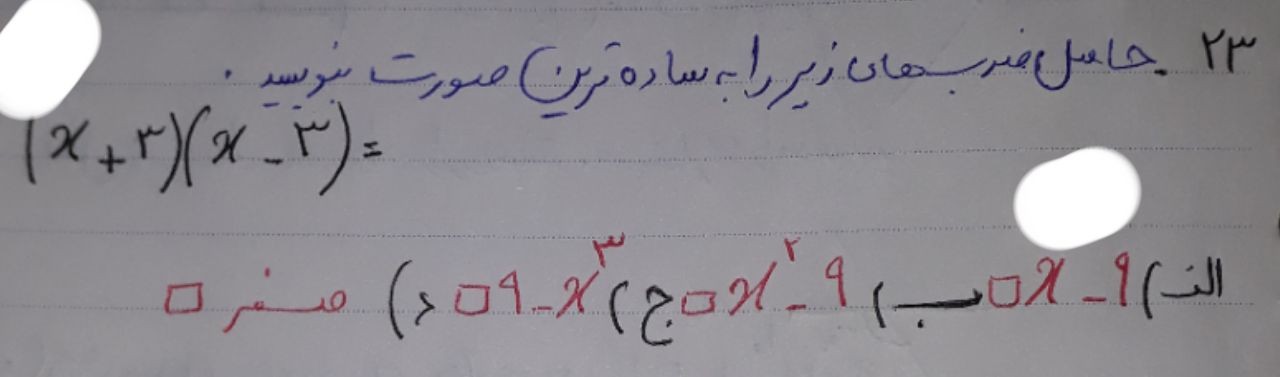 ۲۳. حاصل ضرب‌های زیر را به ساده‌ترین صورت بنویسید.
(x+۳)(x-۳)=
الف) x-۹ □ ب) x²-۹ □ ج) ۹-x³ □ د) صفر □